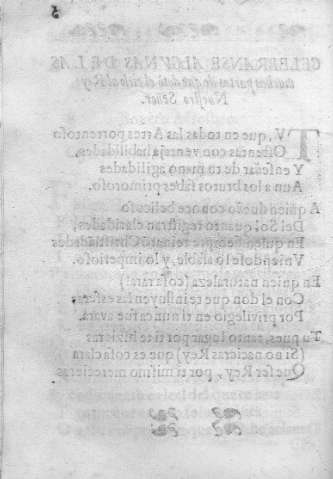 CELEBRANSE ALGVNAS DE LAS
muchas partes de que dotò el cielo al Rey
Nuestro Señor.
TV, que en todas las Artes portentoso
Ostentas con ventaja habilidades,
Y enseñar de tu mano agilidades
Aun a los brutos sabes primoroso.
A quien dueño conoce belicoso
Del Sol quanto registran claridades,
En quien siempre reinarà Christiandades
Vniendose lo afable, y lo impetioso.
En quien naturaleza (cosa rara!)
Con el don que te influyen las esferas
Por privilegio en ti nunca fue avara.
Tu pues, tanto lugar por ti te hizieras
(Si no nacieras Rey) que es cosa clara
Que ser Rey, por ti mismo merecieras